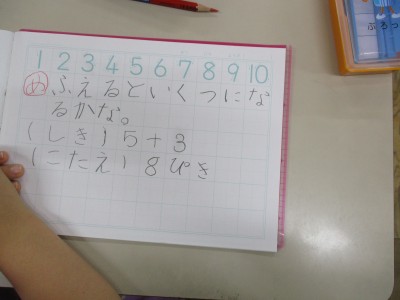 1 2 3 4 5 6 7 8 9 10
め ふえるといくつにな
るかな。
(しき) 5+3
(こたえ) 8ぴき